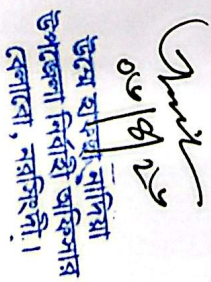 ০৬/৪/২৬
উম্মে হাফছা নাদিয়া
উপজেলা নির্বাহী অফিসার
বেলাবো, নরসিংদী।